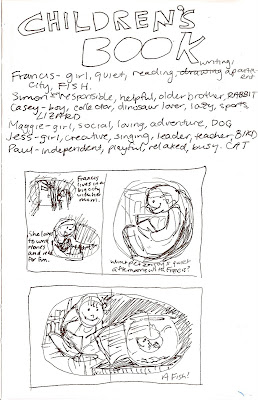 CHILDREN'S
BOOK
writing,
Francus-girl, quiet, reading, drawing, apartment
City, FISH.
Simon-responsible, helpful, older brother, RABBIT
Casey-boy, collector, dinosaur lover, lazy, sports
LIZARD
Maggie-girl, social, loving, adventure, DOG
Jess-girl, creative, singing, leader, teacher, BIRD
Paul-independent, playful, relaxed, busy. CAT
Francis
lives in a
big city
with his
mum.
She loves
to write
stories
and read
for him.
What pet enjoys a quiet
afternoon with Francis?
A Fish!